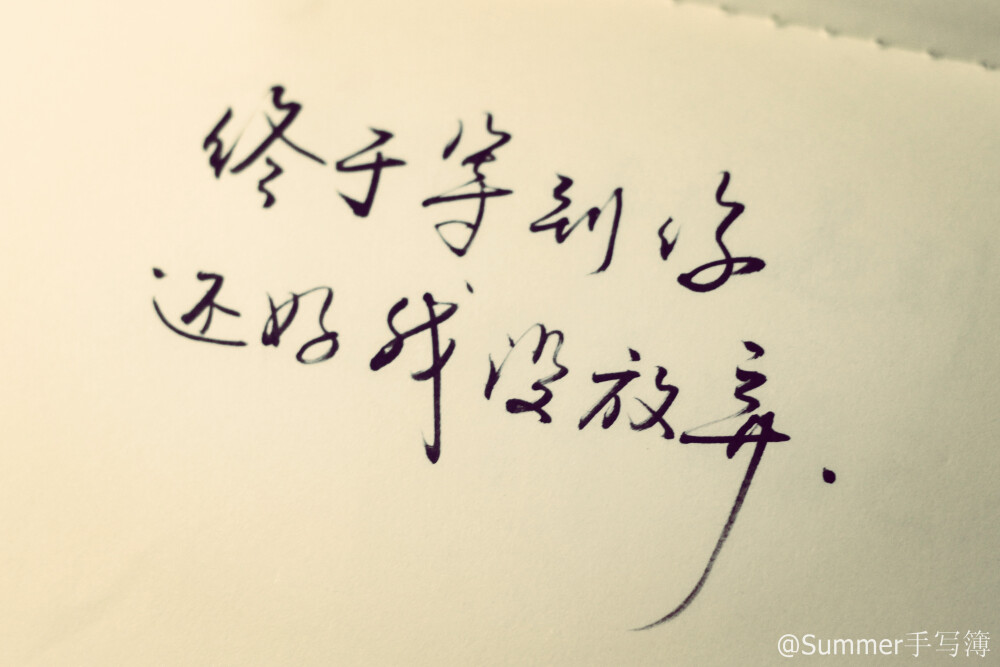 终于等到你
还好我没放弃.
@Summer手写簿